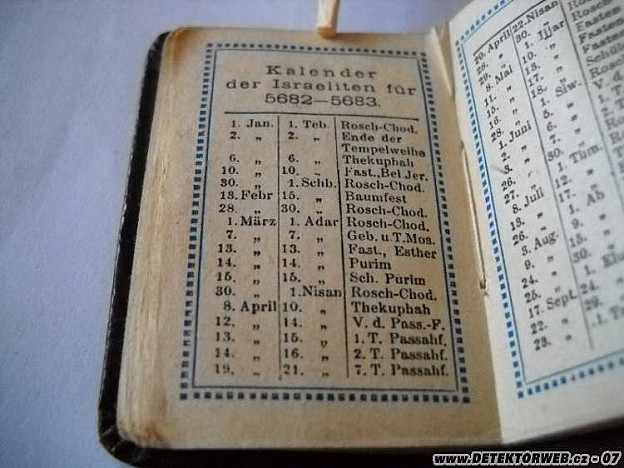 Kalender
der Israeliten für
5682—5683.
1. Jan. 1. Teb. Rosch-Chod.
2. „ 2. „ Ende der
Tempelweihe
6. „ 6. „ Thekuphah
10. „ 10. „ Fast., Bel Jer.
30. „ 1. Schb. Rosch-Chod.
13. Febr 15. „ Baumfest
28. „ 30. „ Rosch-Chod.
1. März 1. Adar Rosch-Chod.
7. „ 7. „ Geb. u. T. Mos.
13. „ 13. „ Fast., Esther
14. „ 14. „ Purim
15. „ 15. „ Sch. Purim
30. „ 1. Nisan Rosch-Chod.
8. April 10. „ Thekuphah
12. „ 14. „ V. d. Pass.-F.
13. „ 15. „ 1. T. Passahf.
14. „ 16. „ 2. T. Passahf.
19. „ 21. „ 7. T. Passahf.
20. April 22. Nisan
28. „ 30. „
29. „ 1. Ijjar
8. Mai 10. „
11. „ 13. „
15. „
16. „ 18. „
28. „ 1. Siw.
1. Juni
2. „
3. „
26. „
27. „ 1. Thm.
8. Juli
13. „ 17. „
26. „ 1. Ab
3. Aug. 9. „
9. „
24. „
25. „
17. Sept. 24. „
22. „ 29. „
23. „
www.DETEKTORWEB.cz - 07